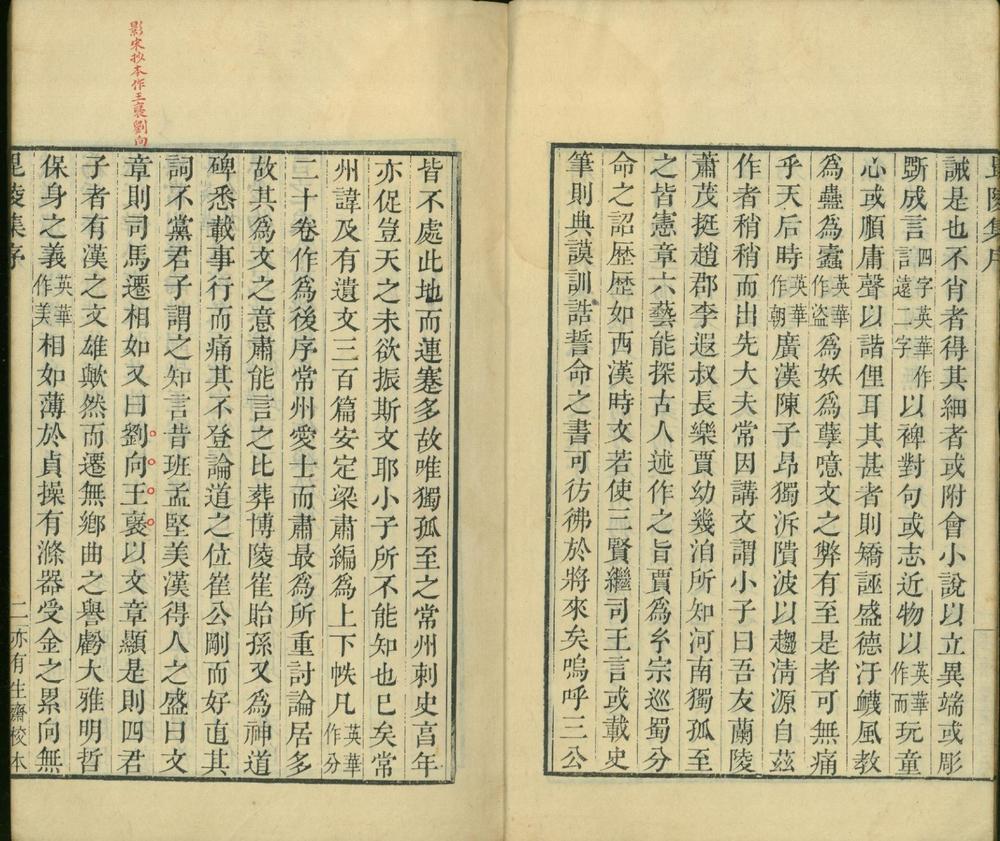 毘陵集序
誡是也不肖者得其細者或附會小說以立異端或彫
斲成言四字英華作言遠二字以裨對句或志近物以英華作而玩童
心或順庸聲以諧俚耳其甚者則矯誣盛德汙衊風教
為蠱為蠹英華作盜為妖為孽噫文之弊有至是者可無痛
乎天后時英華作朝廣漢陳子昂獨泝隤波以趨清源自茲
作者稍稍而出先大夫常因講文謂小子曰吾友蘭陵
蕭茂挺趙郡李遐叔長樂賈幼幾洎所知河南獨孤至
之皆憲章六藝能探古人述作之旨賈為玄宗巡蜀分
命之詔歷歷如西漢時文若使三賢繼司王言或載史
筆則典謨訓誥誓命之書可彷彿於將來矣嗚呼三公
皆不處此地而連蹇多故唯獨孤至之常州刺史亯年
亦促豈天之未欲振斯文耶小子所不能知也已矣常
州諱及有遺文三百篇安定梁肅編為上下帙凡英華作分
二十卷作為後序常州愛士而肅最為所重討論居多
故其為文之意肅能言之比葬博陵崔貽孫又為神道
碑悉載事行而痛其不登論道之位崔公剛而好直其
詞不黨君子謂之知言昔班孟堅美漢得人之盛曰文
影宋抄本作王襃劉向
章則司馬遷相如又曰劉向王襃以文章顯是則四君
子者有漢之文雄歟然而遷無鄉曲之譽虧大雅明哲
保身之義英華作美相如薄於貞操有滌器受金之累向無
毘陵集序
二
亦有生齋校本